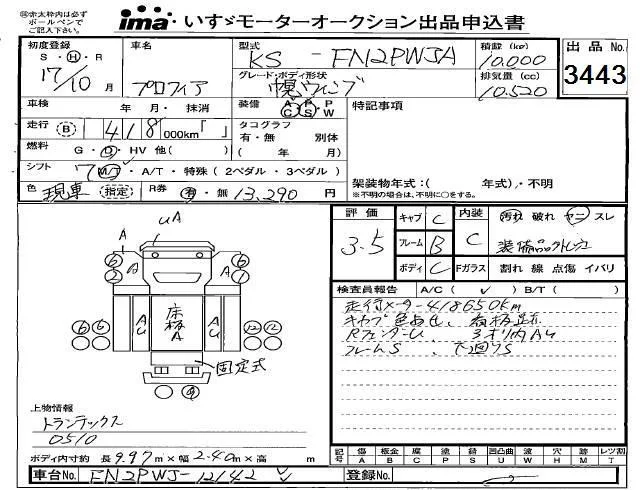 ㊟赤太枠内は必ず
ボールペンで
ご記入下さい。
ima・いすゞモーターオークション出品申込書
初度登録 車名 型式 積載(kg) 出品No.
S・Ⓗ・R KS - FN2PWJA 10,000
17/10月 プロフィア グレード・ボディ形状 排気量(cc) 3443
幌ウィング 10,520
車検 年 月・抹消 装備 A P・P C S・W 特記事項
走行 Ⓑ 418 000km「 」 タコグラフ
有・無 別体
燃料 G・D・HV 他( ) ( 年 月)
シフト 7 MT・A/T・特殊(2ペダル・3ペダル) 架装物年式:( 年式)・不明
※不明の場合は、不明に○をする。
色 現車 指定 R券 有・無 13,290円
評価 キャブ C 内装 汚れ 破れ ヤニ スレ
3.5 フレーム B C 装備品外し
ボディ C Fガラス 割れ 線 点傷 イバリ
検査員報告 A/C( ✓ ) B/T( )
走行メーター418650km
キャブ色あせ、看板跡
Rフェンダーu、3オリ内AU
フレームS、下廻りS
UA
A A
⑥ ⑥
② ①
⑥ ⑥ AU 床板A AU ⑫ ⑫
固定式
上物情報
トランテックス
0510
ボディ内寸約 長 9.97 m×幅 2.40 m×高 m
記号 傷 板金 腐 塗 錆 凹凸曲 波 穴 跡 レツ割
A B C P S U W H M T
車台No. FN2PWJ-12142 登録No.